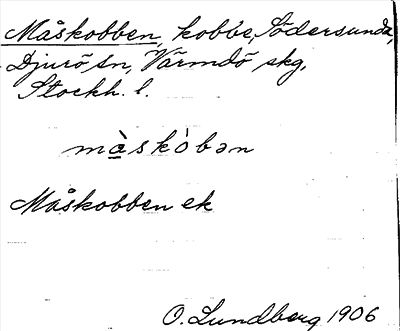 Måskobben, kobbe, Södersunda,
Djurö sn, Värmdö skg,
Stockh. l.
màskòbən
Måskobben ek
O. Lundberg 1906